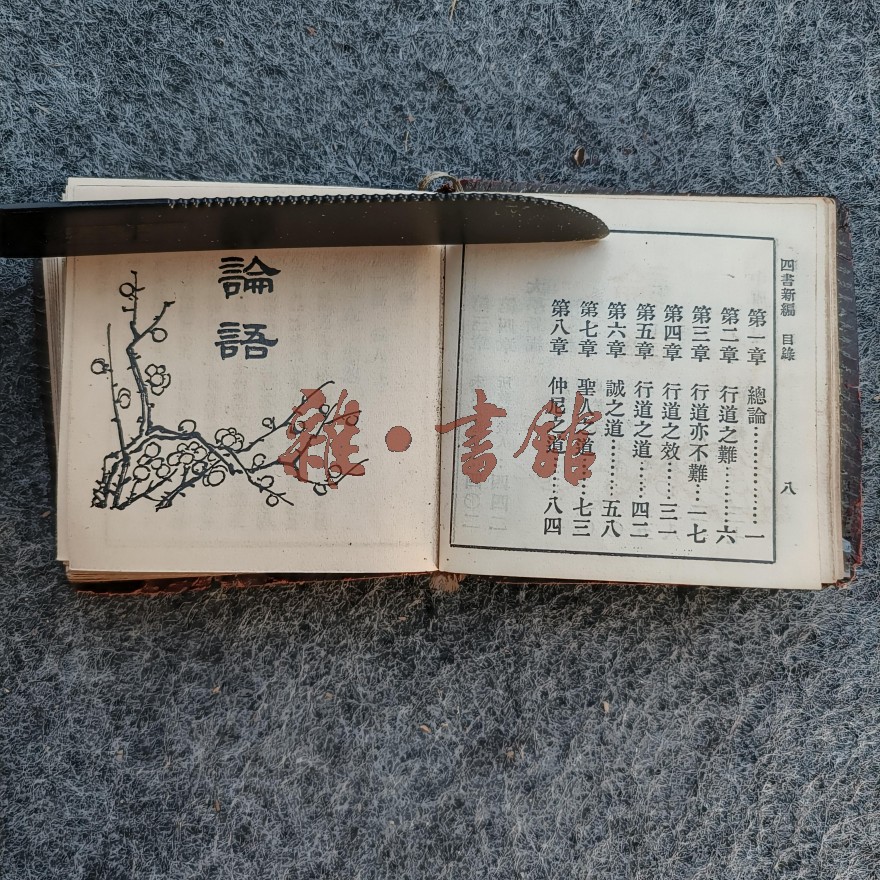 四書新編 目錄 八
第一章 總論……………一
第二章 行道之難…………六
第三章 行道亦不難…一七
第四章 行道之效……三一
第五章 行道之道……四二
第六章 誠之道………五八
第七章 聖人之道……七三
第八章 仲尼之道……八四
論語
雜·書館